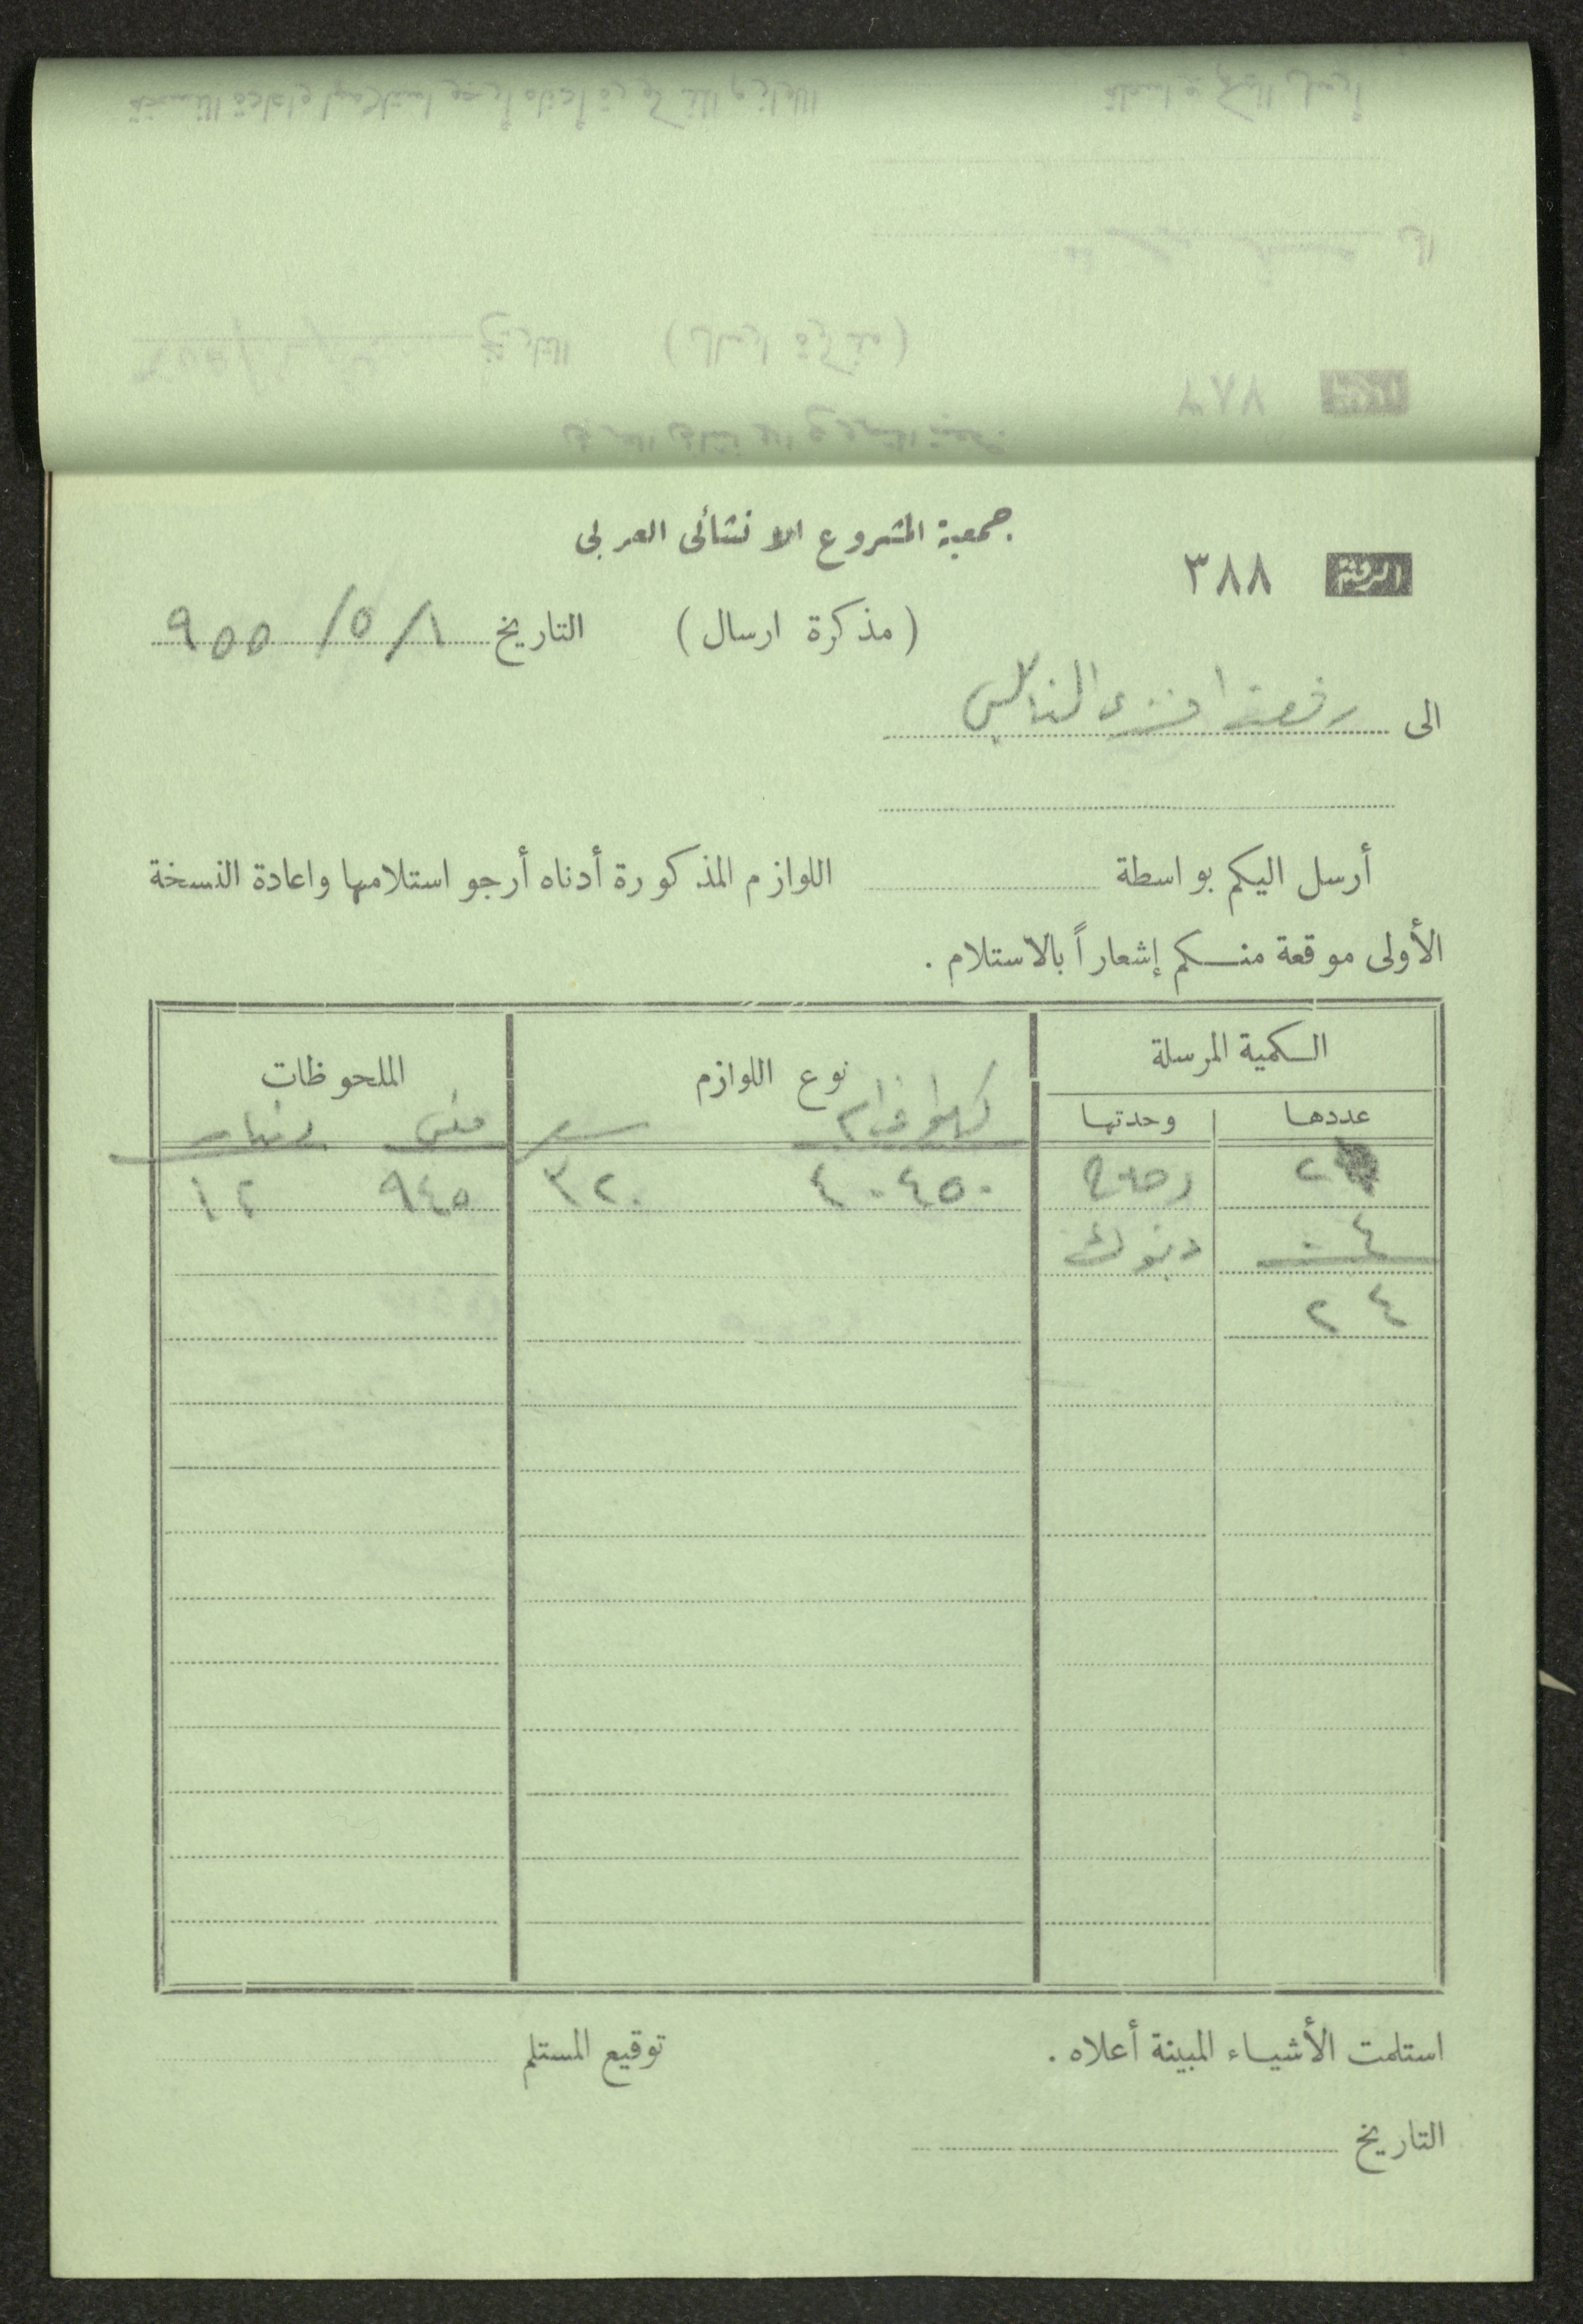 جمعية المشروع الانشائى العربى
الرقم ٣٨٨
(مذكرة ارسال) التاريخ ١/ ٥/ ٩٥٥
الى رفعت افندي النابلسي
أرسل اليكم بواسطة اللوازم المذكورة أدناه أرجو استلامها واعادة النسخة
الأولى موقعة منكم إشعاراً بالاستلام .
الكمية المرسلة نوع اللوازم الملحوظات
عددها وحدتها كيلو غرام سعر فلس دينار
٢٠ ٤٠٤٥٠ ٣٢٠ ٩٤٥ ١٢
٠٤ ديوك
٢٤
استلمت الأشياء المبينة أعلاه . توقيع المستلم
التاريخ